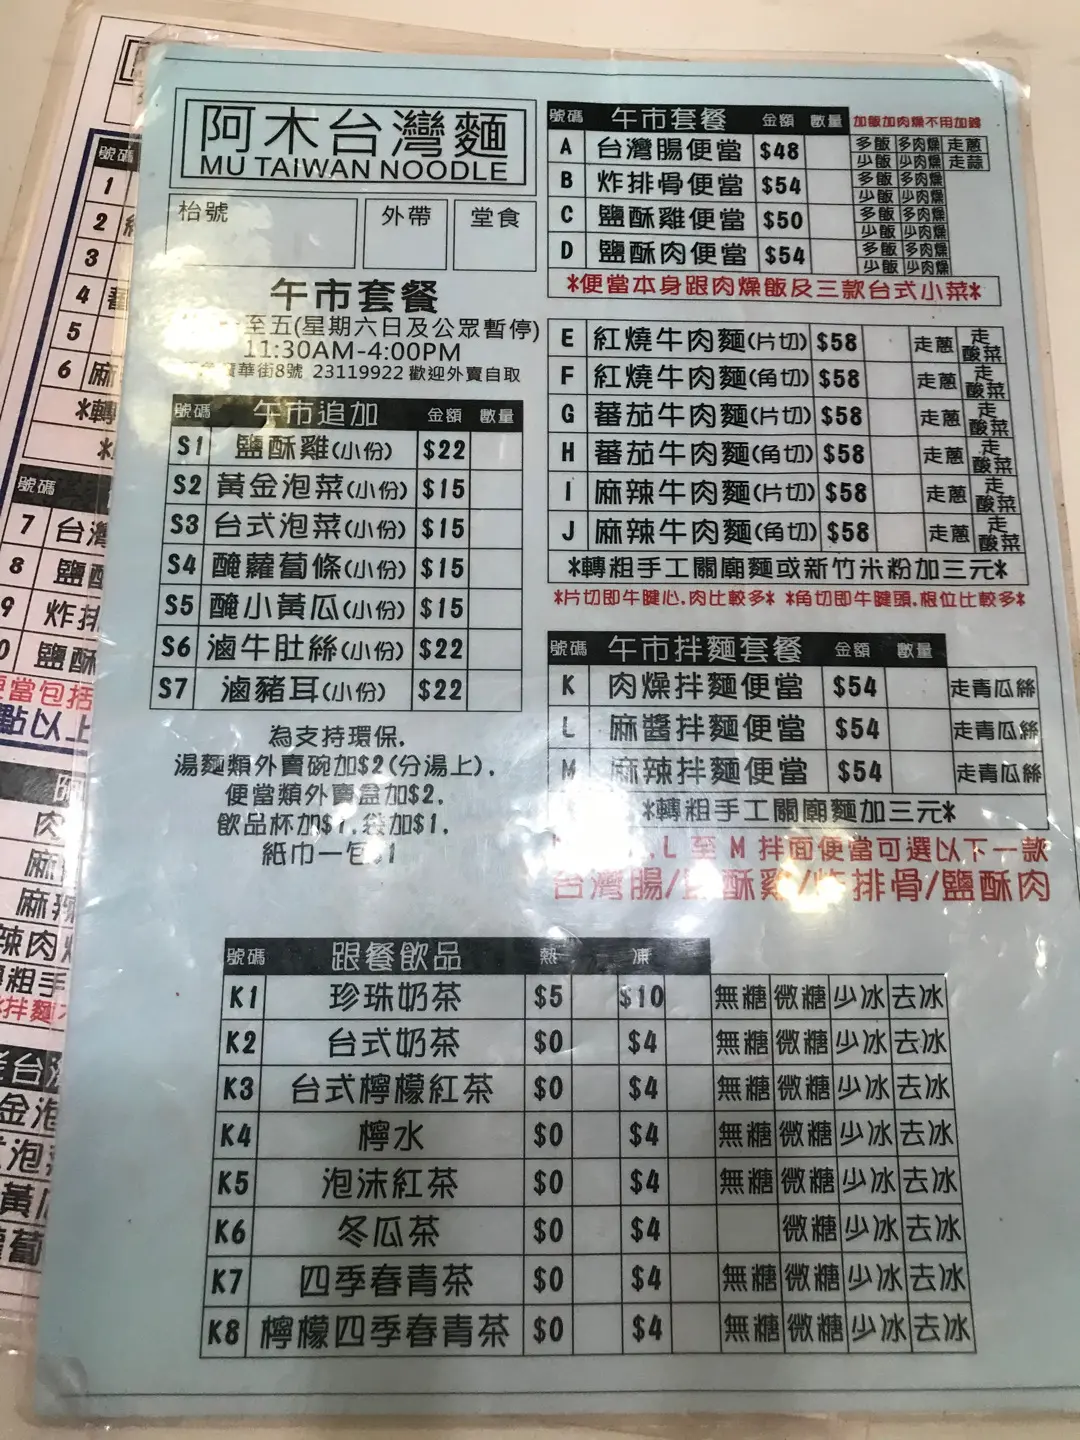 阿木台灣麵
MU TAIWAN NOODLE
枱號 外帶 堂食
午市套餐
至五(星期六日及公眾暫停)
11:30AM-4:00PM
華街8號 23119922 歡迎外賣自取
號碼 午市追加 金額 數量
S1 鹽酥雞(小份) $22
S2 黃金泡菜(小份) $15
S3 台式泡菜(小份) $15
S4 醃蘿蔔條(小份) $15
S5 醃小黃瓜(小份) $15
S6 滷牛肚絲(小份) $22
S7 滷豬耳(小份) $22
為支持環保,
湯麵類外賣碗加$2(分湯上),
便當類外賣盒加$2,
飲品杯加$1,袋加$1,
紙巾一包$1
號碼 午市套餐 金額 數量 加飯加肉燥不用加錢
A 台灣腸便當 $48 多飯 多肉燥 走蔥
少飯 少肉燥 走蒜
B 炸排骨便當 $54 多飯 多肉燥
少飯 少肉燥
C 鹽酥雞便當 $50 多飯 多肉燥
少飯 少肉燥
D 鹽酥肉便當 $54 多飯 多肉燥
少飯 少肉燥
*便當本身跟肉燥飯及三款台式小菜*
E 紅燒牛肉麵(片切) $58 走蔥 走酸菜
F 紅燒牛肉麵(角切) $58 走蔥 走酸菜
G 蕃茄牛肉麵(片切) $58 走蔥 走酸菜
H 蕃茄牛肉麵(角切) $58 走蔥 走酸菜
I 麻辣牛肉麵(片切) $58 走蔥 走酸菜
J 麻辣牛肉麵(角切) $58 走蔥 走酸菜
*轉粗手工關廟麵或新竹米粉加三元*
*片切即牛腱心,肉比較多* *角切即牛腱頭,根位比較多*
號碼 午市拌麵套餐 金額 數量
K 肉燥拌麵便當 $54 走青瓜絲
L 麻醬拌麵便當 $54 走青瓜絲
M 麻辣拌麵便當 $54 走青瓜絲
*轉粗手工關廟麵加三元*
L 至 M 拌面便當可選以下一款
台灣腸/鹽酥雞/炸排骨/鹽酥肉
號碼 跟餐飲品 熱 凍
K1 珍珠奶茶 $5 $10 無糖 微糖 少冰 去冰
K2 台式奶茶 $0 $4 無糖 微糖 少冰 去冰
K3 台式檸檬紅茶 $0 $4 無糖 微糖 少冰 去冰
K4 檸水 $0 $4 無糖 微糖 少冰 去冰
K5 泡沫紅茶 $0 $4 無糖 微糖 少冰 去冰
K6 冬瓜茶 $0 $4 微糖 少冰 去冰
K7 四季春青茶 $0 $4 無糖 微糖 少冰 去冰
K8 檸檬四季春青茶 $0 $4 無糖 微糖 少冰 去冰
號碼
1
2
3
4
5
6 麻
*轉
號碼
7 台灣
8 鹽酥
9 炸排
鹽酥
當包括
點以上
阿
肉
麻
麻辣
辣肉
粗手
*拌麵
台
金泡
泡菜
黃
蔔